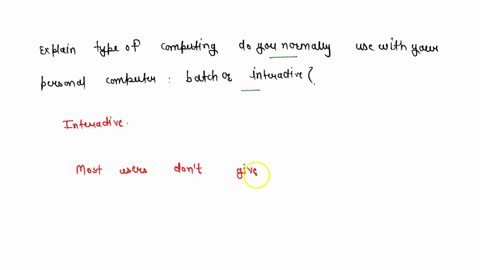 Explain type of computing do you normally use with your
personal computer : batch or interactive (.
Interactive.
Most users don't give